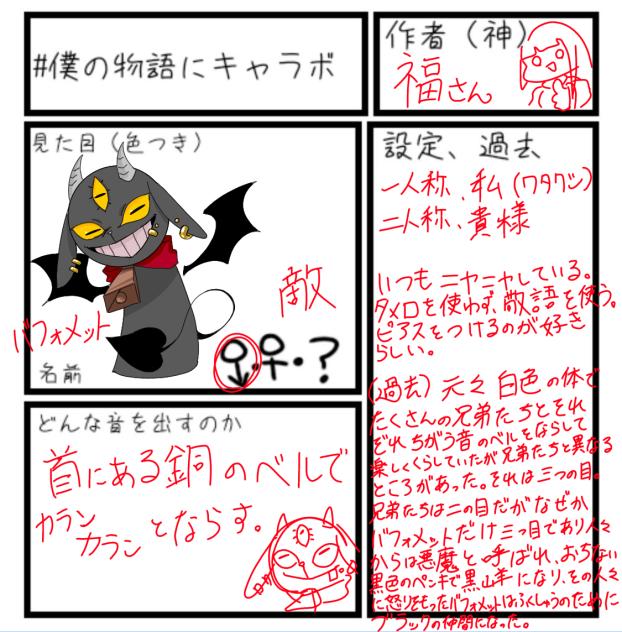 #僕の物語にキャラボ
作者(神)
福さん
見た目(色つき)
敵
バフォメット
名前
・?
設定、過去
一人称、私(ワタクシ)
二人称、貴様
いつもニヤニヤしている。
タメ口を使わず、敬語を使う。
ピアスをつけるのが好き
らしい。
(過去)元々白色の体で
たくさんの兄弟たちとそれ
ぞれちがう音のベルをならして
楽しくくらしていたが兄弟たちと異なる
ところがあった。それは三つの目。
兄弟たちは二の目だがなぜか
バフォメットだけ三つ目であり人々
からは悪魔と呼ばれ、おちない
黒色のペンキで黒山羊になり、その人々
に怒りをもったバフォメットはふくしゅうのために
ブラックの仲間になった。
どんな音を出すのか
首にある銅のベルで
カラン
カラン
とならす。